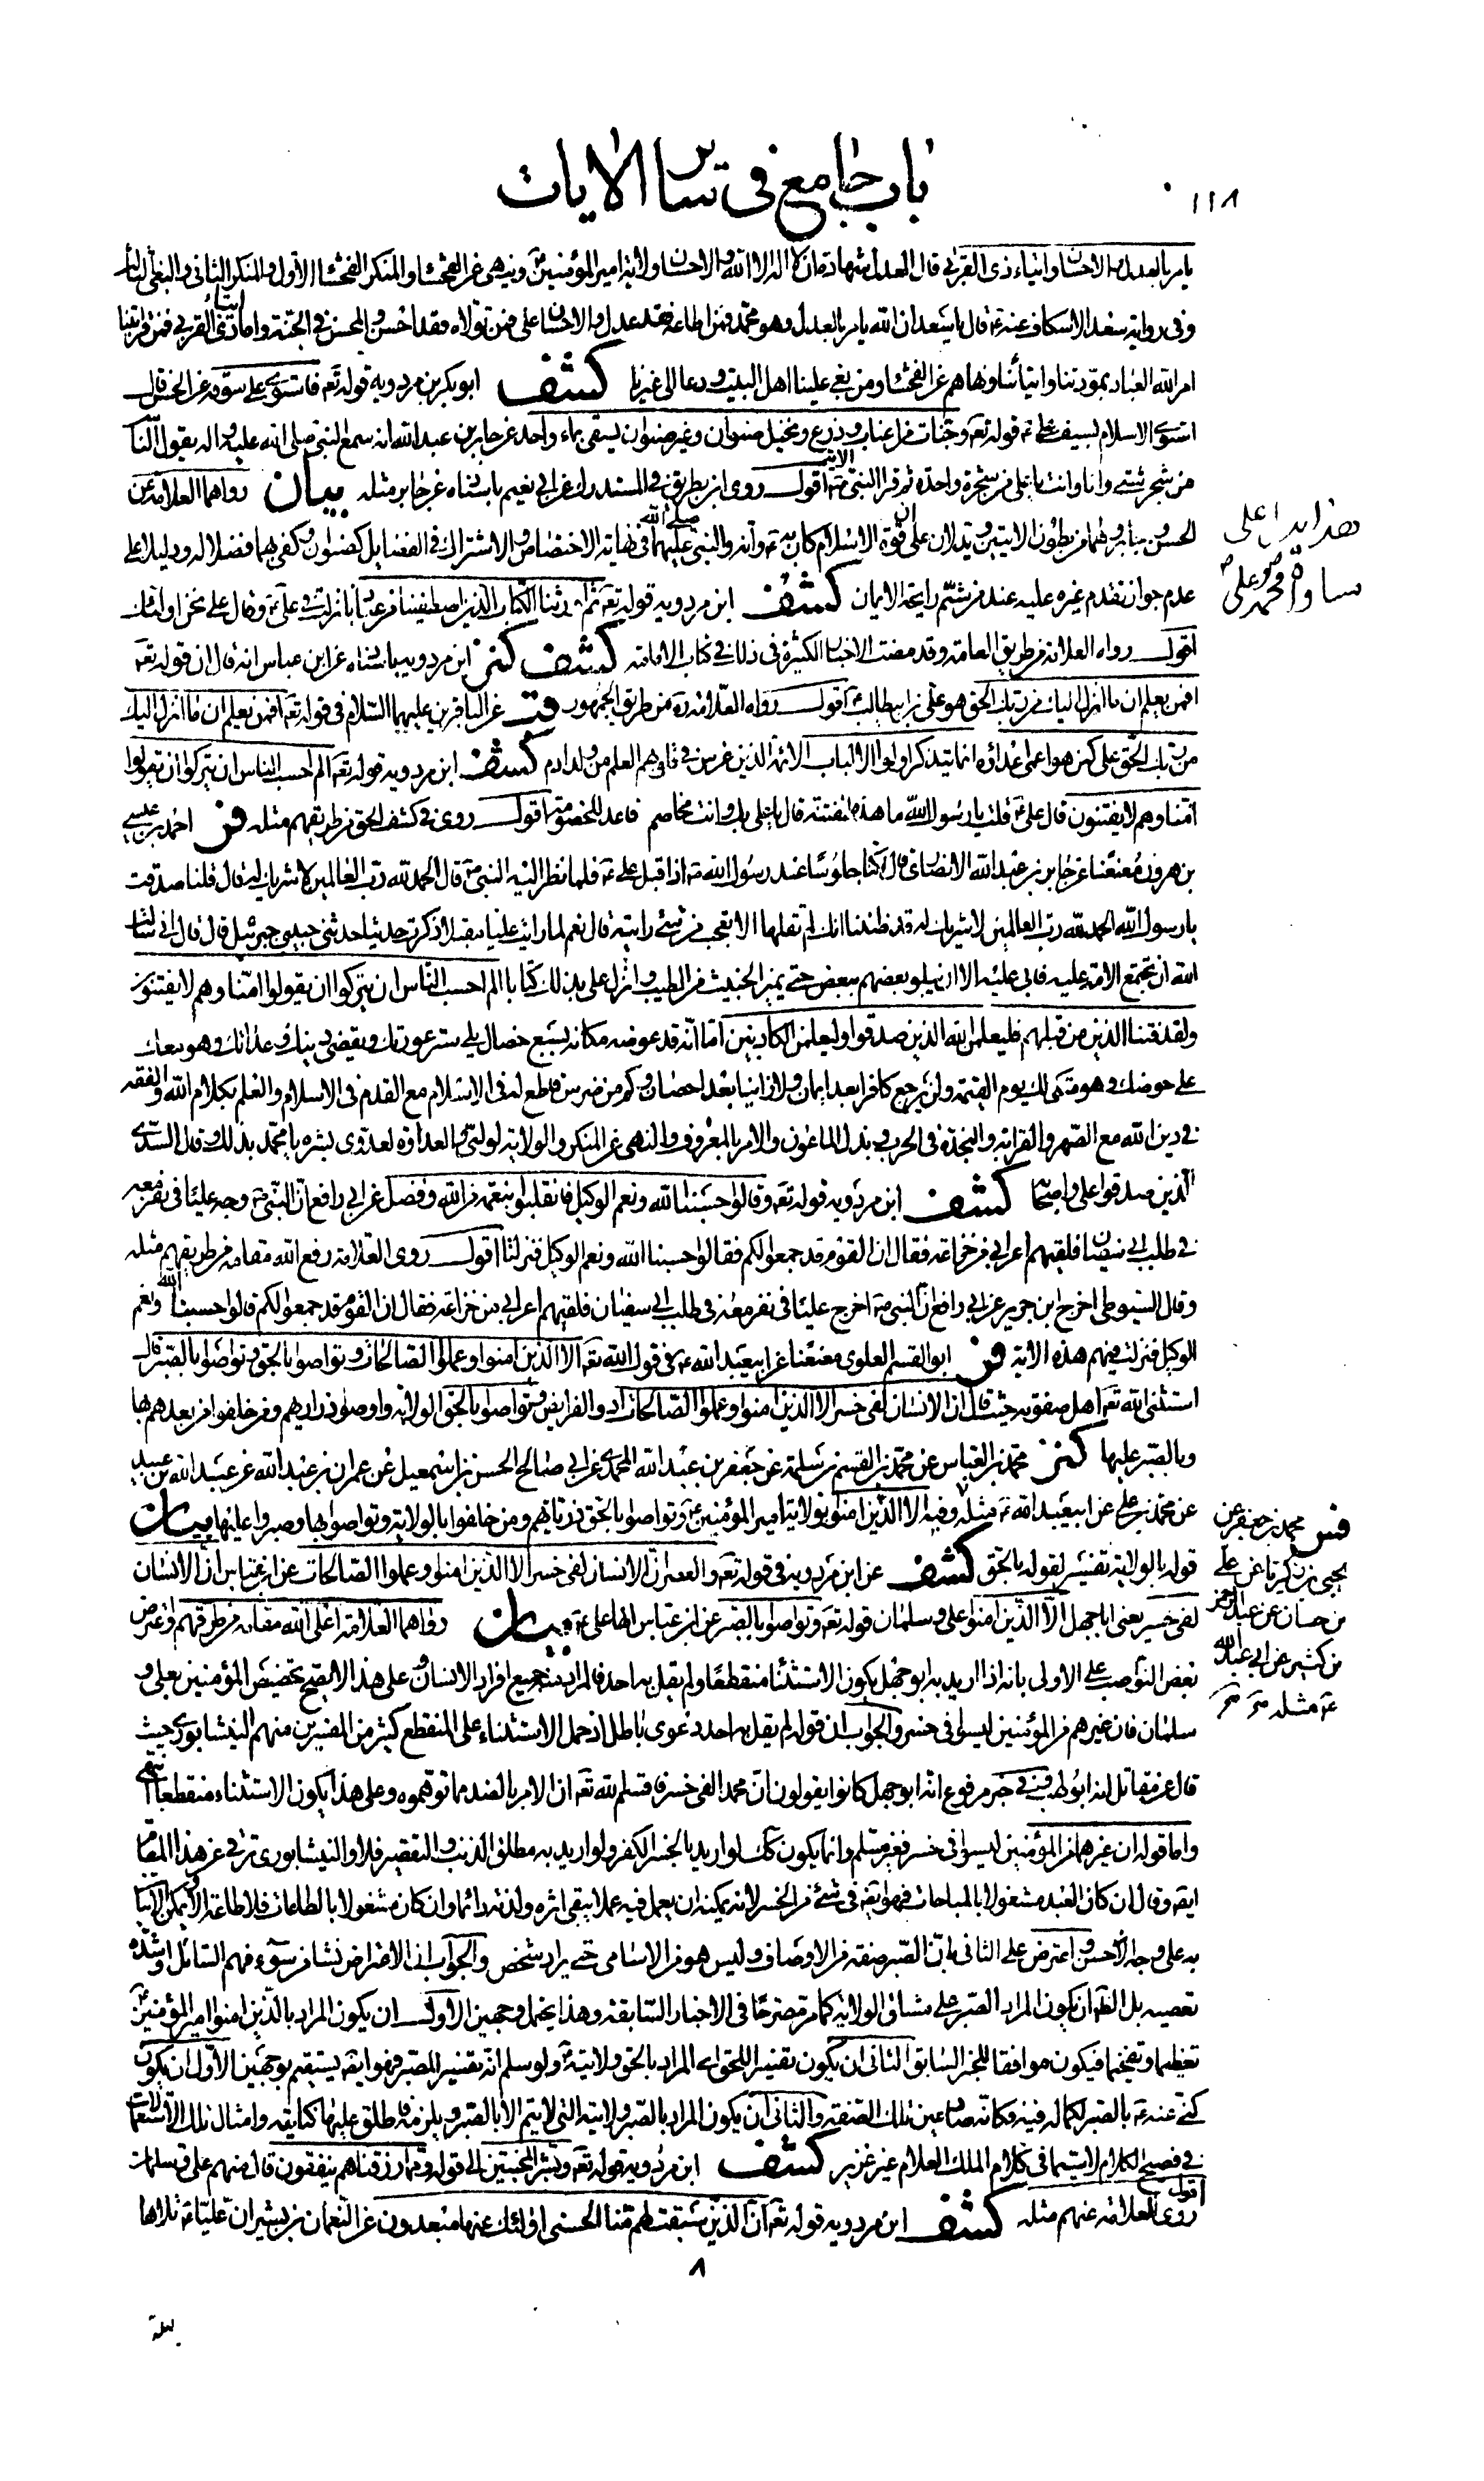 ١١٨
باب جامع في سائر الايات
يامر بالعدل والاحسان وايتاء ذى القربى قال العدل شهادة ان لا اله الا الله والاحسان ولاية امير المؤمنين وينهى عن الفحشاء والمنكر الفحشاء الاول والمنكر الثانى والبغى الثالث
وفى رواية سعد الاسكاف عنه ع قال يا سعد ان الله يامر بالعدل وهو محمد فمن اطاعه فقد عدل والاحسان على فمن تولاه فقد احسن والمحسن في الجنة واما ايتاء ذى القربى فمن قرابتنا
امر الله العباد بمودتنا وايتائنا ونهاهم عن الفحشاء ومن بغى علينا اهل البيت ودعا الى غيرنا كشف ابو بكر بن مردويه قوله تعه فاستوى على سوقه عن الحسن قال
استوى الاسلام بسيف على ع قوله تعه وجنات من اعناب وزرع ونخيل صنوان وغير صنوان يسقى بماء واحد عن جابر بن عبد الله انه سمع النبى صلى الله عليه واله يقول الناس
من شجر شتى وانا وانت يا على من شجرة واحدة ثم قرا النبى ص الاية اقول روى ابن بطريق في المستدرك عن ابى نعيم باسناده عن جابر مثله بيان رواهما العلامة عن
الحسن وجابر وهما من بطون الايتين ويدلان على ان قوة الاسلام كان به ع وانه والنبى صلى الله عليهما في نهاية الاختصاص والاشتراك في الفضايل كصنوان وكفى بهما فضلا له ودليلا على
عدم جواز تقدم غيره عليه عند من شم رايحة الايمان كشف ابن مردويه قوله تعه ثم اورثنا الكتاب الذين اصطفينا من عبادنا نزلت في على ع وقال على نحن اولئك
اقول رواه العلامة من طريق العامة وقد مضت الاخبار الكثيرة في ذلك في كتاب الامامة كشف كنز ابن مردويه باسناده عن ابن عباس انه قال ان قوله تعه
افمن يعلم ان ما انزل اليك من ربك الحق هو على بن ابيطالب ع اقول رواه العلامة ره من طريق الجمهور قب عن الباقرين عليهما السلام في قوله تعه افمن يعلم ان ما انزل اليك
من ربك الحق على كمن هو اعمى اعداؤه انما يتذكر اولوا الالباب الائمة الذين غرس في قلوبهم العلم من ولد ادم كشف ابن مردويه قوله تعه الم احسب الناس ان يتركوا ان يقولوا
امنا وهم لا يفتنون قال على ع قلت يا رسول الله ما هذه الفتنة قال يا على بك وانت مخاصم فاعد للخصومة اقول روى في كشف الحق من طريقهم مثله فر احمد بن عيسى
بن هرون معنعنا عن جابر بن عبد الله الانصارى قال كنا جلوسا عند رسول الله ص اذ اقبل على ع فلما نظر اليه النبى ص قال الحمد لله رب العالمين لا شريك له قال قلنا صدقت
يا رسول الله الحمد لله رب العالمين لا شريك له قد ظننا انك لم تقلها الا بعجب من شئ رايته قال نعم لما رايت عليا مقبلا ذكرت حديثا حدثنى حبيبى جبرئيل قال قال انى سالت
الله ان تجتمع الامة عليه فابى عليه الا ان يبلو بعضهم ببعض حتى يميز الخبيث من الطيب وانزل على بذلك كتابا الم احسب الناس ان يتركوا ان يقولوا امنا وهم لا يفتنون
ولقد فتنا الذين من قبلهم فليعلمن الله الذين صدقوا وليعلمن الكاذبين اما انه قد عوضه مكانه بسبع خصال يلى ستر عورتك ويقضى دينك وعداتك وهو معك
على حوضك وهو متكى لك يوم القيمة ولن يرجع كافرا بعد ايمان ولا زانيا بعد احصان وكم من ضرس قاطع له في الاسلام مع القدم في الاسلام والعلم بكلام الله والفقه
في دين الله مع الصهر والقرابة والنجدة في الحرب وبذل الماعون والامر بالمعروف والنهى عن المنكر والولاية لوليى والعداوة لعدوى بشره يا محمد بذلك وقال السدى
الذين صدقوا على واصحابه كشف ابن مردويه قوله تعه وقالوا حسبنا الله ونعم الوكيل فانقلبوا بنعمة من الله وفضل عن ابى رافع ان النبى ص وجه عليا في نفر معه
في طلب ابى سفيان فلقيهم اعرابى من خزاعة فقال ان القوم قد جمعوا لكم فقالوا حسبنا الله ونعم الوكيل فنزلتا اقول روى العلامة رفع الله مقامه من طريقهم مثله
وقال السيوطى اخرج ابن جرير عن ابى رافع ان النبى ص اخرج عليا في نفر معه في طلب ابى سفيان فلقيهم اعرابى من خزاعة فقال ان القوم قد جمعوا لكم قالوا حسبنا الله ونعم
الوكيل فنزلت فيهم هذه الاية فر ابو القسم العلوى معنعنا عن ابيعبد الله ع في قول الله تعه الا الذين امنوا وعملوا الصالحات وتواصوا بالحق وتواصوا بالصبر قال
استثنى الله تعه اهل صفوته حيث قال ان الانسان لفى خسر الا الذين امنوا وعملوا الصالحات ادوا الفرايض وتواصوا بالحق الولاية واوصوا ذراريهم ومن خلفوا من بعدهم بها
وبالصبر عليها كنز محمد بن العباس عن محمد بن القسم بن سلمة عن جعفر بن عبد الله المحمدى عن ابى صالح الحسن بن اسمعيل عن عمران بن عبد الله عن عبد الله بن عبيد
عن محمد بن على عن ابيعبد الله ع مثله وفيه الا الذين امنوا بولاية امير المؤمنين ع وتواصوا بالحق ذرياتهم ومن خلفوا بالولاية وتواصوا بها وصبروا عليها بيان
قوله بالولاية تفسير لقوله بالحق كشف عن ابن مردويه في قوله تعه والعصر ان الانسان لفى خسر الا الذين امنوا وعملوا الصالحات عن ابن عباس ان الانسان
لفى خسر يعنى ابا جهل الا الذين امنوا على وسلمان قوله تعه وتواصوا بالصبر عن ابن عباس انها على ع بيان رواهما العلامة اعلى الله مقامه من طرقهم واعترض
بعض النواصب على الاولى بانه اذا اريد به ابو جهل يكون الاستثناء منقطعا ولم يقل به احد فالمراد منه جميع افراد الانسان وعلى هذا لا يصح تخصيص المؤمنين بعلى و
سلمان فان غيرهم من المؤمنين ليسوا في خسر والجواب ان قوله لم يقل به احد دعوى باطل اذ حمل الاستثناء على المنقطع كثير من المفسرين منهم النيشابورى حيث
قال عن مقاتل انه ابو لهب وفى خبر مرفوع انه ابو جهل كانوا يقولون ان محمدا لفى خسر فاقسم الله تعه ان الامر بالضد مما توهموه وعلى هذا يكون الاستثناء منقطعا انتهى
واما قوله ان غيرهما من المؤمنين ليسوا في خسر فغير مسلم وانما يكون كك لو اريد بالخسر الكفر ولو اريد به مطلق الذنب والتقصير فلا والنيشابورى ترقى عن هذا المقام
ايضه وقال ان كان العبد مشغولا بالمباحات فهو ايضه في شئ من الخسر لانه يمكنه ان يعمل فيه عملا يبقى اثره ولذته دائما وان كان مشغولا بالطاعات فلا طاعة الا ويمكن الاتيان
به على وجه احسن واعترض على الثانى بان الصبر صفة من الاوصاف وليس هو من الاسامى حتى يراد شخص والجواب ان الاعتراض نشا من سوء فهم السائل او شدة
تعصبه بل الظه ان يكون المراد الصبر على مشاق الولاية كما مر مصرحا في الاخبار السابقة وهذا يحتمل وجهين الاول ان يكون المراد بالذين امنوا امير المؤمنين ع
تعظيما وتفخيما فيكون موافقا للخبر السابق الثانى ان يكون تفسيرا للحق اى المراد بالحق ولايته ع ولو سلم انه تفسير للصبر فهو ايضه يستقيم بوجهين الاول ان يكون
كنى عنه ع بالصبر لكماله فيه فكانه صار عين تلك الصفة والثانى ان يكون المراد بالصبر ولايته التى لا يتم الا بالصبر ويلزمه فاطلق عليها كناية وامثال تلك الاستعمالات
في فصيح الكلام لا سيما في كلام الملك العلام غير عزيز كشف ابن مردويه قوله تعه وبشر المخبتين الى قوله ومما رزقناهم ينفقون قال منهم على وسلمان
اقول روى العلامة عنهم مثله كشف ابن مردويه قوله تعه ان الذين سبقت لهم منا الحسنى اولئك عنها مبعدون عن النعمان بن بشير ان عليا ع تلاها
هذا يدل على
فس محمد بن جعفر عن
يحيى بن زكريا عن على
بن حسان عن عبد الرحمن
بن كثير عن ابى عبد الله
ع مثله
٨
ليلة